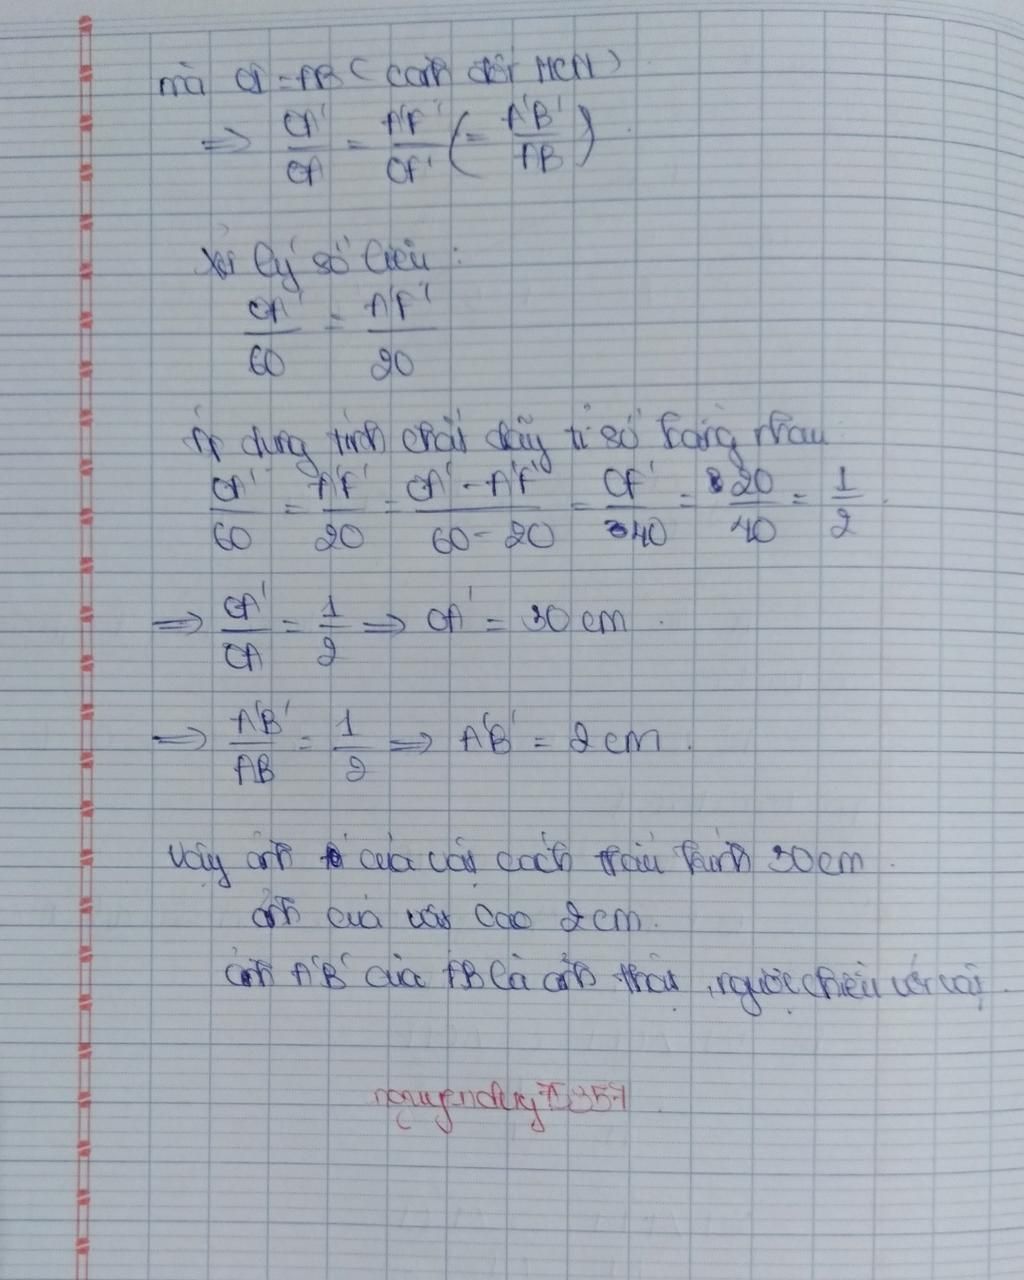 mà OI = AB (cạnh đối HCN)
=> OA'/OA = A'F'/OF' (= A'B'/AB)
Xử lý số liệu :
OA'/60 = A'F'/20
Áp dụng tính chất dãy tỉ số bằng nhau
OA'/60 = A'F'/20 = OA' - A'F'/60 - 20 = OF'/40 = 20/40 = 1/2.
=> OA'/OA = 1/2 => OA' = 30 cm .
=> A'B'/AB = 1/2 => A'B' = 2 cm .
Vậy ảnh của vật cách thấu kính 30 cm .
ảnh của vật cao 2 cm.
ảnh A'B' của AB là ảnh thật , ngược chiều với vật .
nguyenduy75357